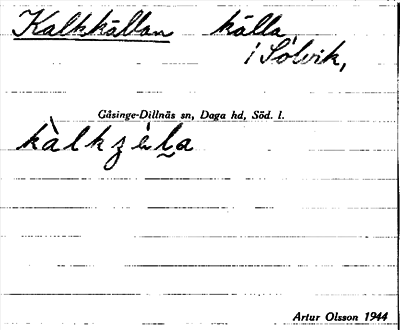 Kalkkällan källa
i Solvik,
Gåsinge-Dillnäs sn, Daga hd, Söd. l.
kàlkʒela
Artur Olsson 1944